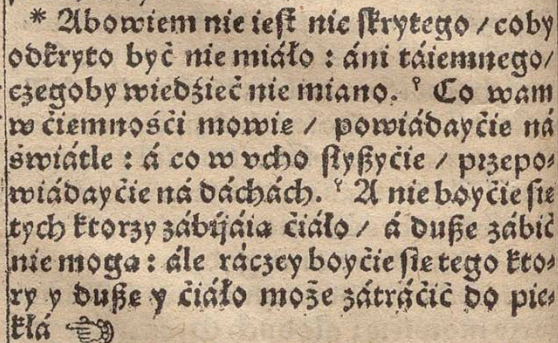 * Abowiem nie iest nic skrytego / coby
odkryto być nie miáło : áni táiemnego /
czegoby wiedźieć nie miano. Co wam
w ćiemnośći mowię / powiádayćie ná
świátle : á co w vcho słyßyćie / przepo-
wiádayćie ná dáchách. A nie boyćie się
tych ktorzy zábijáią ćiáło / á dußę zábić
nie mogą : ále ráczey boyćie się tego kto-
ry y dußę y ćiáło może zátráćić do pie-
kłá ☜